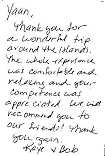 Yaan,
Thank you for
a wonderful trip
around the islands.
The whole experience
was comfortable and
relaxing and your
competence was
appreciated. We will
recommend you to
our friends! Thank
you again,
Kaye & Bob